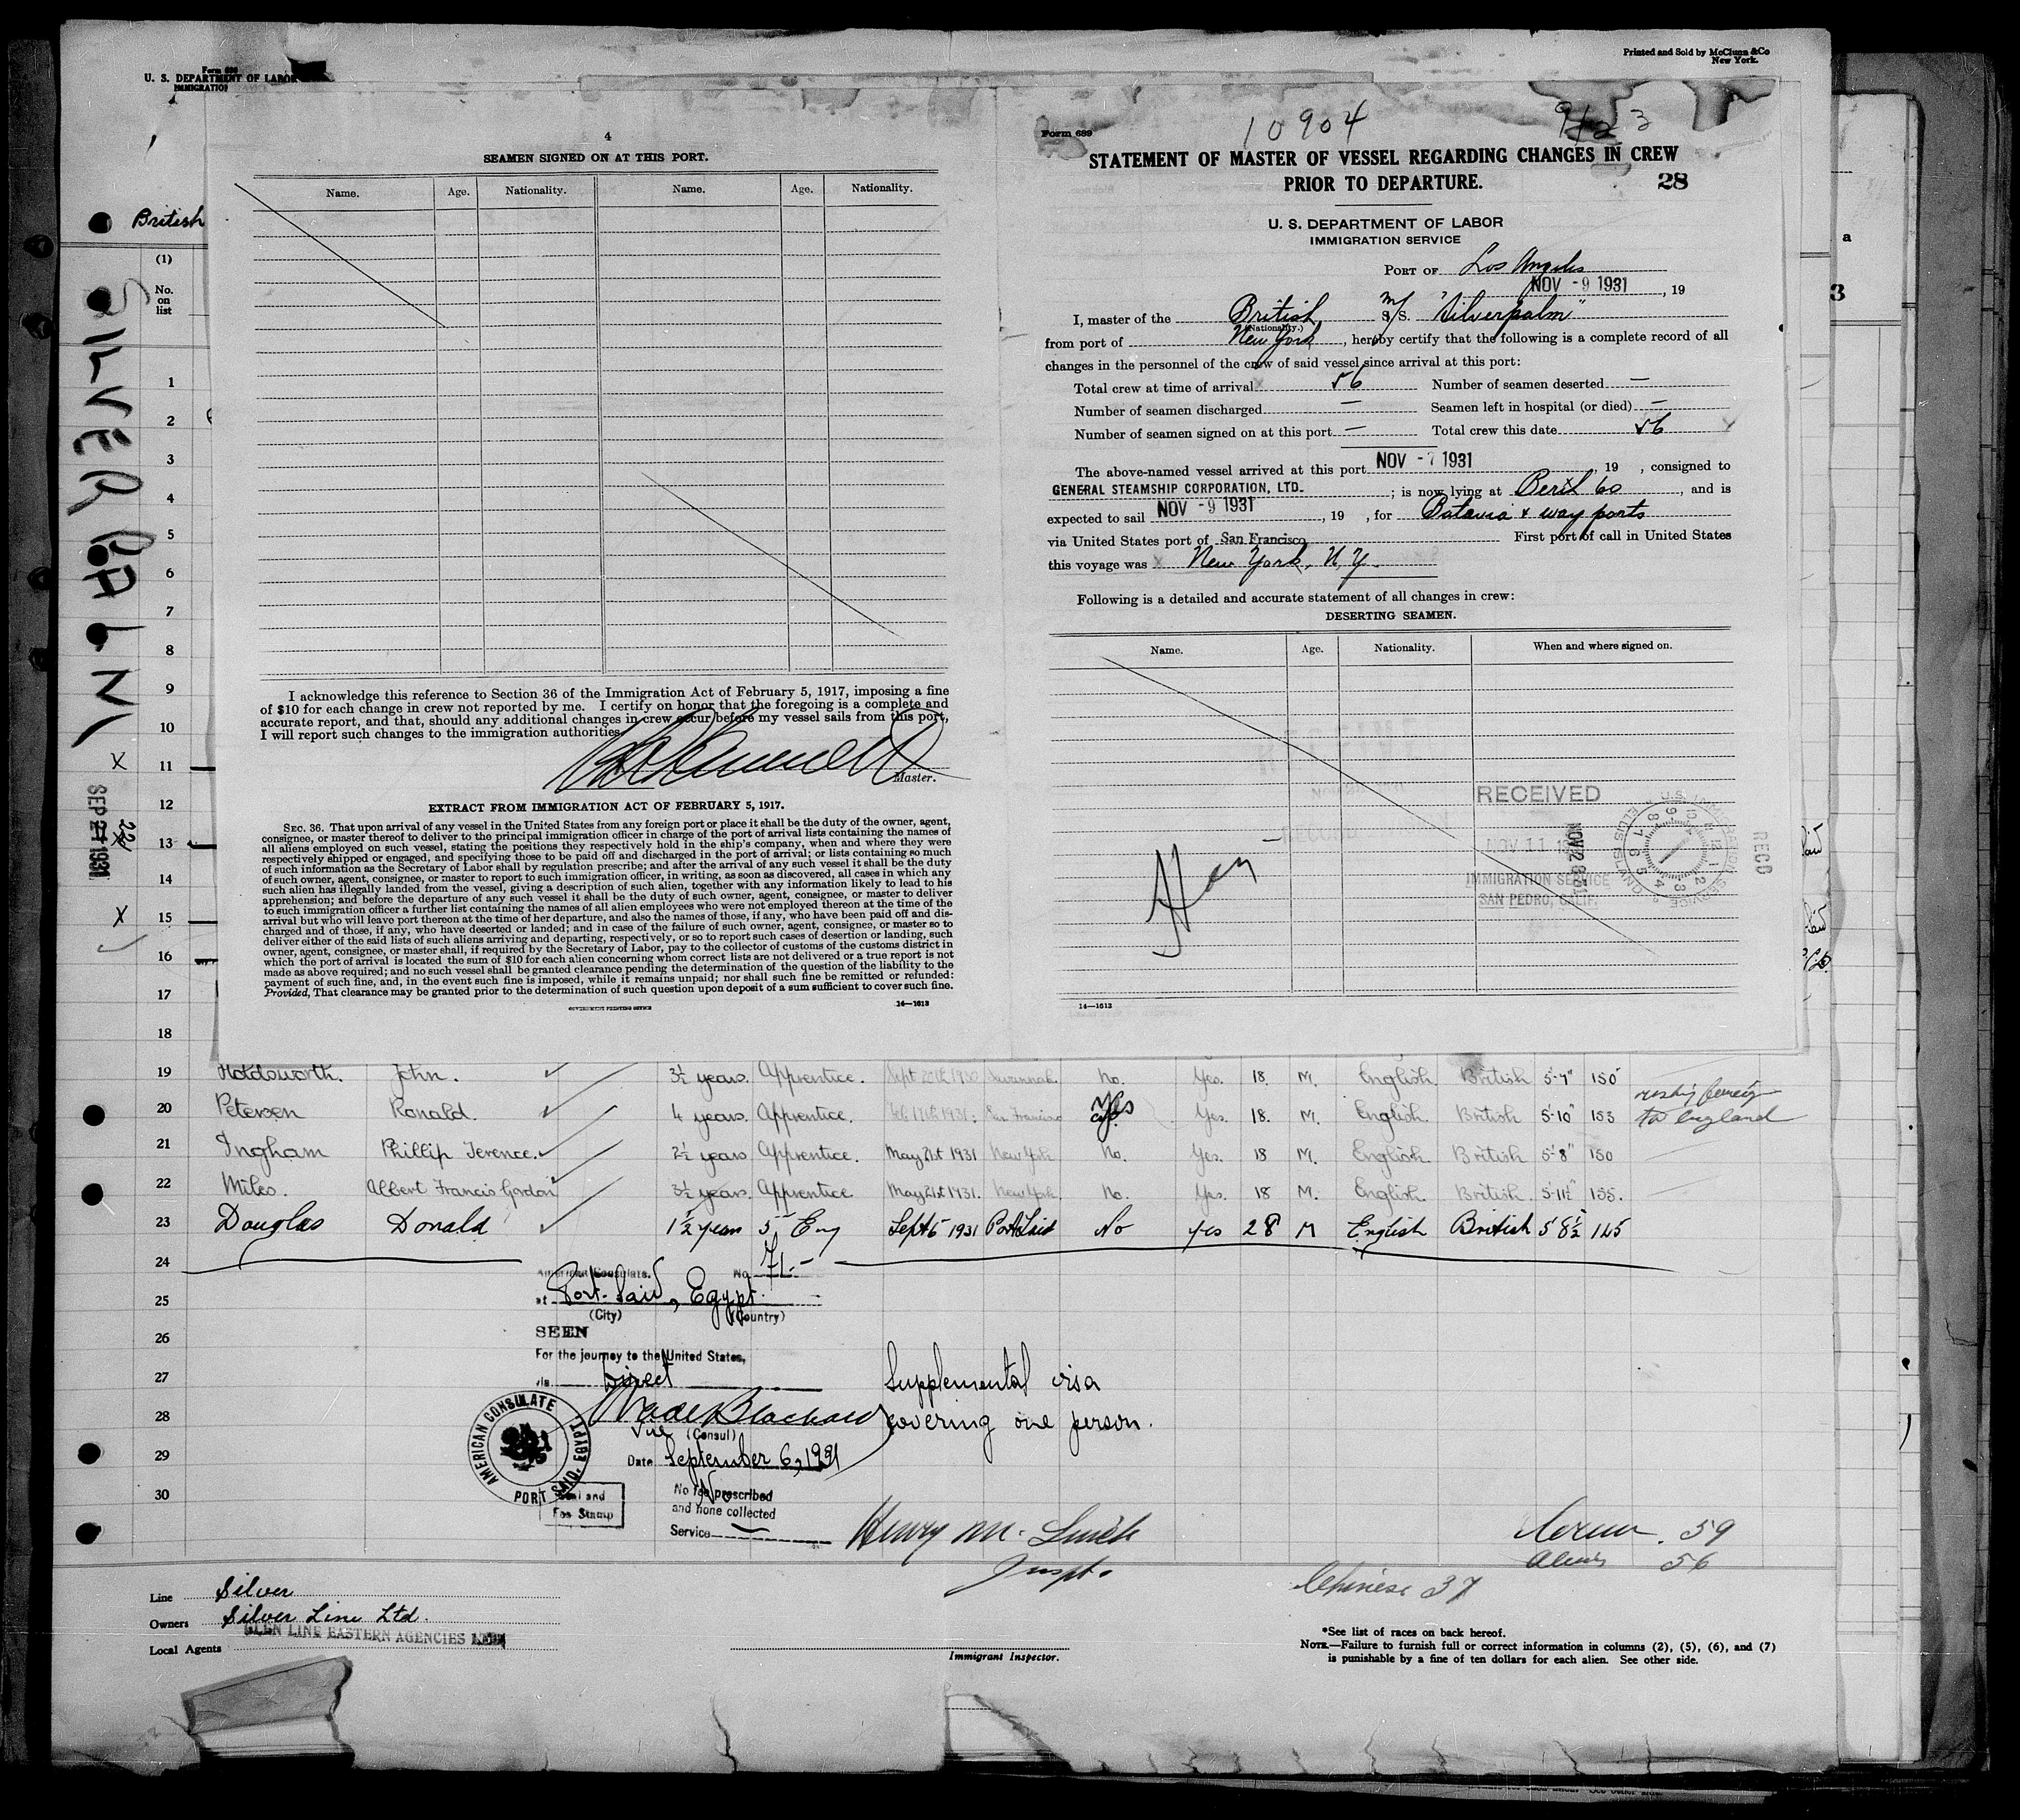 Form 680
U. S. DEPARTMENT OF LABOR
IMMIGRATION
Printed and Sold by McClunn & Co
New York.
British
(1)
No.
on
list
SILVERPALM
SEP 1931
22
1
2
3
4
5
6
7
8
9
10
X 11
12
X 13
14
X 15
16
17
18
4
SEAMEN SIGNED ON AT THIS PORT.
Name. Age. Nationality. Name. Age. Nationality.
I acknowledge this reference to Section 36 of the Immigration Act of February 5, 1917, imposing a fine
of $10 for each change in crew not reported by me. I certify on honor that the foregoing is a complete and
accurate report, and that, should any additional changes in crew occur before my vessel sails from this port,
I will report such changes to the immigration authorities.
Master.
EXTRACT FROM IMMIGRATION ACT OF FEBRUARY 5, 1917.
SEC. 36. That upon arrival of any vessel in the United States from any foreign port or place it shall be the duty of the owner, agent,
consignee, or master thereof to deliver to the principal immigration officer in charge of the port of arrival lists containing the names of
all aliens employed on such vessel, stating the positions they respectively hold in the ship's company, when and where they were
respectively shipped or engaged, and specifying those to be paid off and discharged in the port of arrival; or lists containing so much
of such information as the Secretary of Labor shall by regulation prescribe; and after the arrival of any such vessel it shall be the duty
of such owner, agent, consignee, or master to report to such immigration officer, in writing, as soon as discovered, all cases in which any
such alien has illegally landed from the vessel, giving a description of such alien, together with any information likely to lead to his
apprehension; and before the departure of any such vessel it shall be the duty of such owner, agent, consignee, or master to deliver
to such immigration officer a further list containing the names of all alien employees who were not employed thereon at the time of the
arrival but who will leave port thereon at the time of her departure, and also the names of those, if any, who have been paid off and dis-
charged and of those, if any, who have deserted or landed; and in case of the failure of such owner, agent, consignee, or master so to
deliver either of the said lists of such aliens arriving and departing, respectively, or so to report such cases of desertion or landing, such
owner, agent, consignee, or master shall, if required by the Secretary of Labor, pay to the collector of customs of the customs district in
which the port of arrival is located the sum of $10 for each alien concerning whom correct lists are not delivered or a true report is not
made as above required; and no such vessel shall be granted clearance pending the determination of the question of the liability to the
payment of such fine, and, in the event such fine is imposed, while it remains unpaid; nor shall such fine be remitted or refunded:
Provided, That clearance may be granted prior to the determination of such question upon deposit of a sum sufficient to cover such fine.
GOVERNMENT PRINTING OFFICE 14—1613
Form 689
10904
STATEMENT OF MASTER OF VESSEL REGARDING CHANGES IN CREW
PRIOR TO DEPARTURE.
28
U. S. DEPARTMENT OF LABOR
IMMIGRATION SERVICE
PORT OF Los Angeles
NOV -9 1931, 19
I, master of the British M/S. "Silverpalm"
(Nationality.)
from port of New York, hereby certify that the following is a complete record of all
changes in the personnel of the crew of said vessel since arrival at this port:
Total crew at time of arrival 56 Number of seamen deserted —
Number of seamen discharged — Seamen left in hospital (or died) —
Number of seamen signed on at this port — Total crew this date 56
The above-named vessel arrived at this port NOV -7 1931, 19 , consigned to
GENERAL STEAMSHIP CORPORATION, LTD. ; is now lying at Berth 60, and is
expected to sail NOV -9 1931, 19 , for Batavia & way ports
via United States port of San Francisco First port of call in United States
this voyage was New York, N.Y.
Following is a detailed and accurate statement of all changes in crew:
DESERTING SEAMEN.
Name. Age. Nationality. When and where signed on.
RECEIVED
NOV 11
IMMIGRATION SERVICE
SAN PEDRO, CALIF.
NOV 28
U.S. IMMIGRATION SERVICE ELLIS ISLAND
RECD
14—1613
a
3
19 Holdsworth. John. 3½ years. Apprentice. Sept 20th 1930 Savannah. No. Yes. 18. M. English. British 5-7" 150
20 Petersen Ronald. 4 years. Apprentice. Feb 17th 1931. San Francisco Yes Yes. 18. M. English. British 5-10" 153
to England
21 Ingham Phillip Terence. 2½ years Apprentice. May 21st 1931 New York No. Yes. 18 M. English. British 5-8" 150
22 Miles. Albert Francis Gordon 3½ years. Apprentice May 21st 1931. New York. No. Yes. 18 M. English. British. 5-11½" 155.
23 Douglas Donald 1½ year 5 Eng Sept 6 1931 Port Said No Yes 28 M English British 5 8½ 145
24
25
26
27
28
29
30
American Consulate. No. 71.-
at Port-Said, Egypt.
(City) (Country)
SEEN
For the journey to the United States,
via Direct
Vice (Consul)
Date September 6, 1931
Supplemental visa
covering one person.
AMERICAN CONSULATE PORT SAID, EGYPT.
Seal and
Fee Stamp
No fee prescribed
and none collected
Service —
Henry M. Smith
Inspt.
59
Aliens 56
Chinese 37
Line Silver
Owners Silver Line Ltd.
Local Agents GLEN LINE EASTERN AGENCIES
Immigrant Inspector.
*See list of races on back hereof.
NOTE.—Failure to furnish full or correct information in columns (2), (5), (6), and (7)
is punishable by a fine of ten dollars for each alien. See other side.